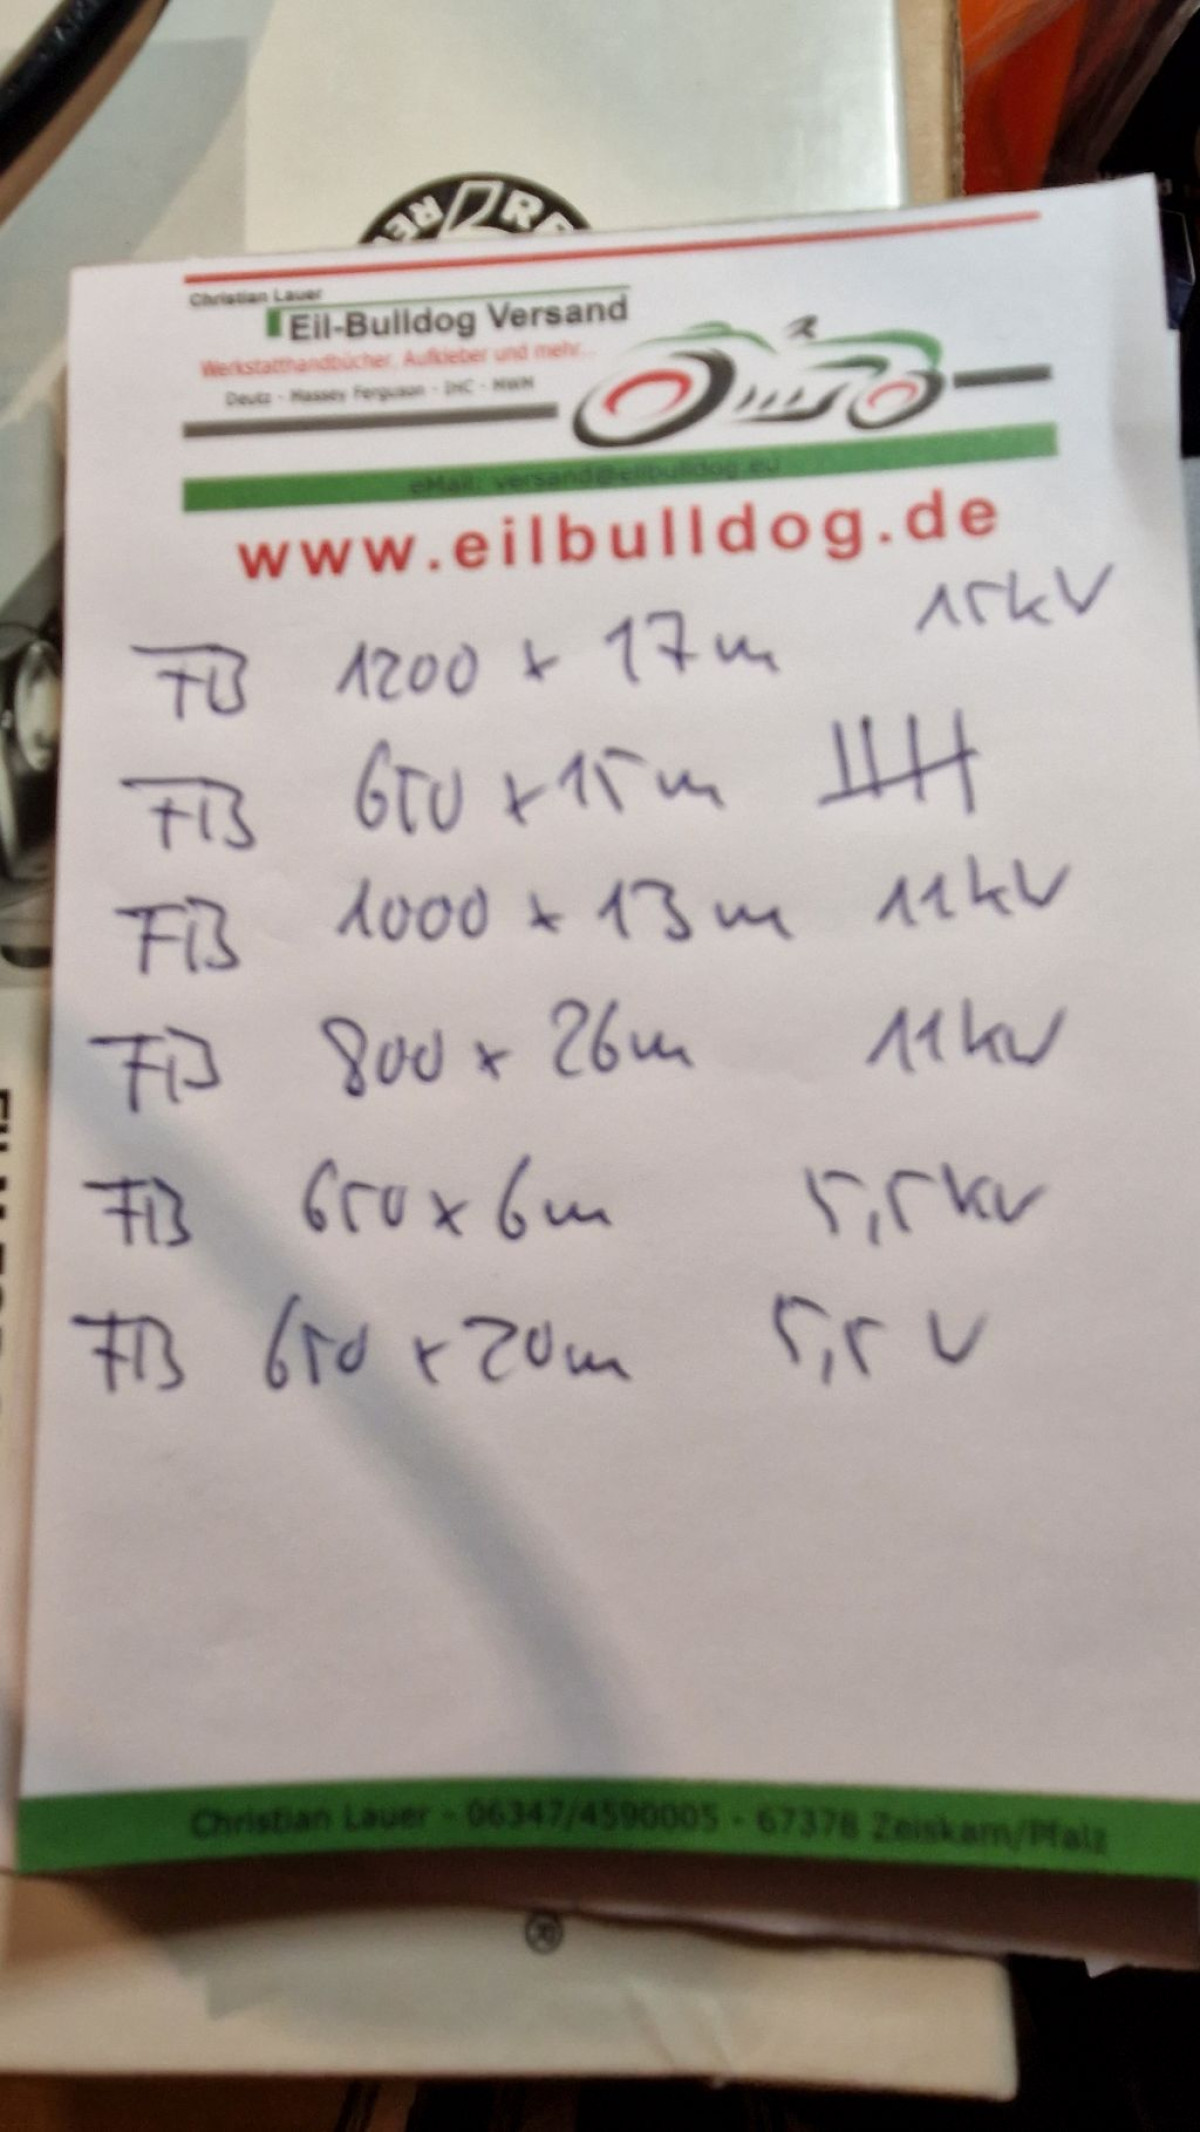 RE RE
Christian Lauer
Eil-Bulldog Versand
Werkstatthandbücher, Aufkleber und mehr...
Deutz - Massey Ferguson - IHC - MWM
eMail: versand@eilbulldog.eu
www.eilbulldog.de
FB 1200 x 17m 15kV
FB 650 x 15m
FB 1000 x 13m 11kV
FB 800 x 26m 11kV
FB 650 x 6m 5,5kV
FB 650 x 20m 5,5 V
Christian Lauer - 06347/4590005 - 67378 Zeiskam/Pfalz
®